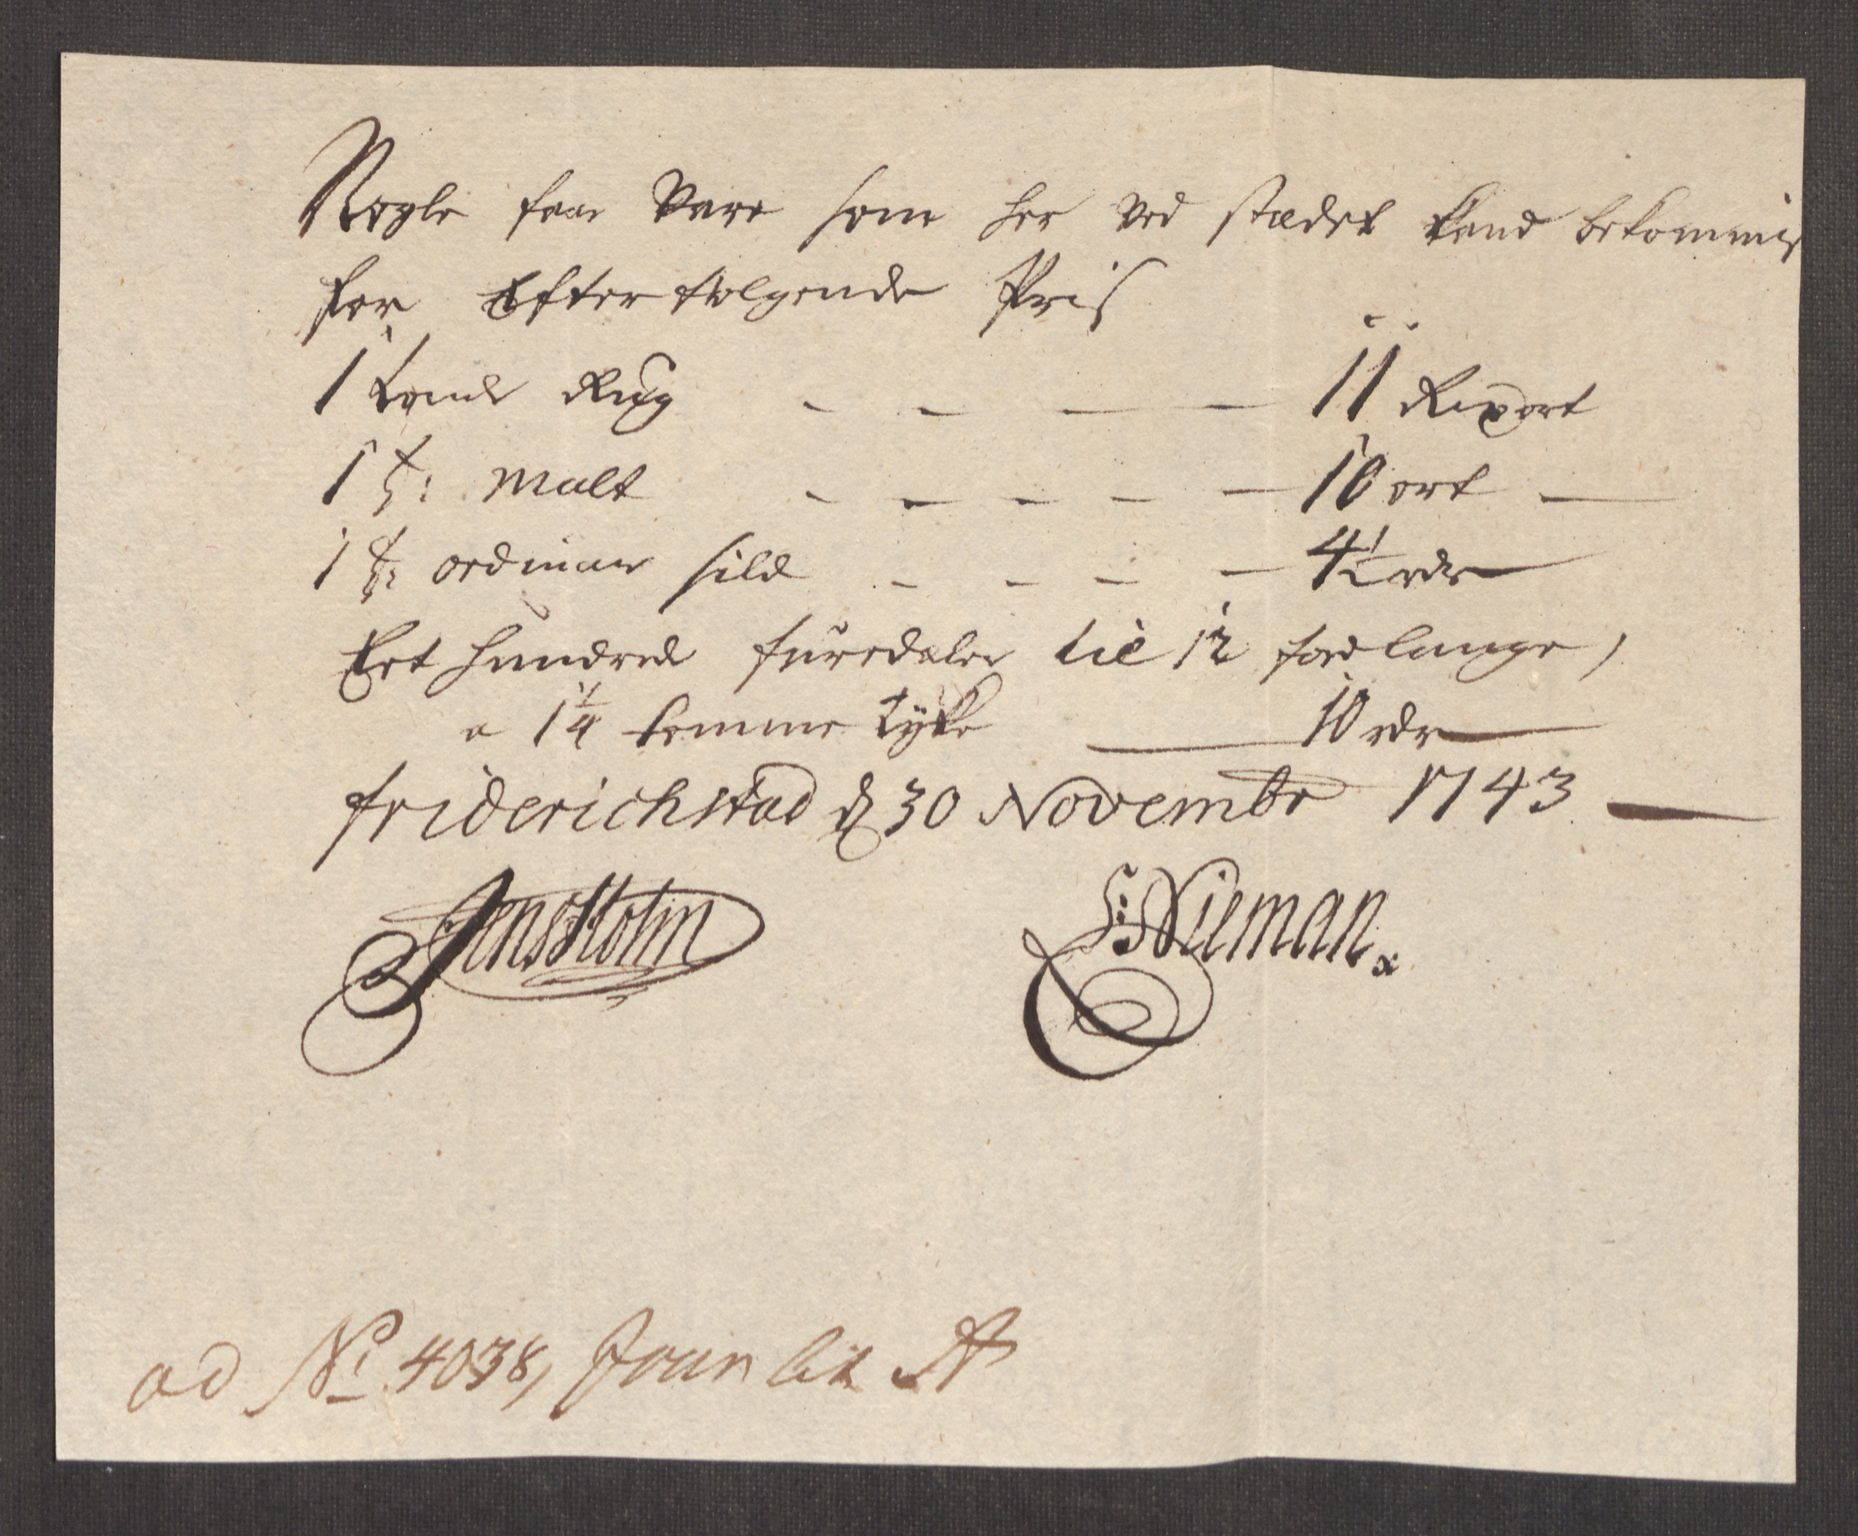 Nogle faae Vare som her ved stædet kand bekommis
for Efterfølgende Pris
1 tønde Rug - - - - 11 Rixort
1 t: Malt - - - - - 10 ort -
1 t: ordinair sild - - - - 4½ rdr
Eet hundrede furredeler til 12 foed lange,
a 1¼ tomme tyke - 10 rdr
Friderichstad d 30 Novembr 1743
Jens Holm
S: Nieman
ad No 4038, Jour lit A